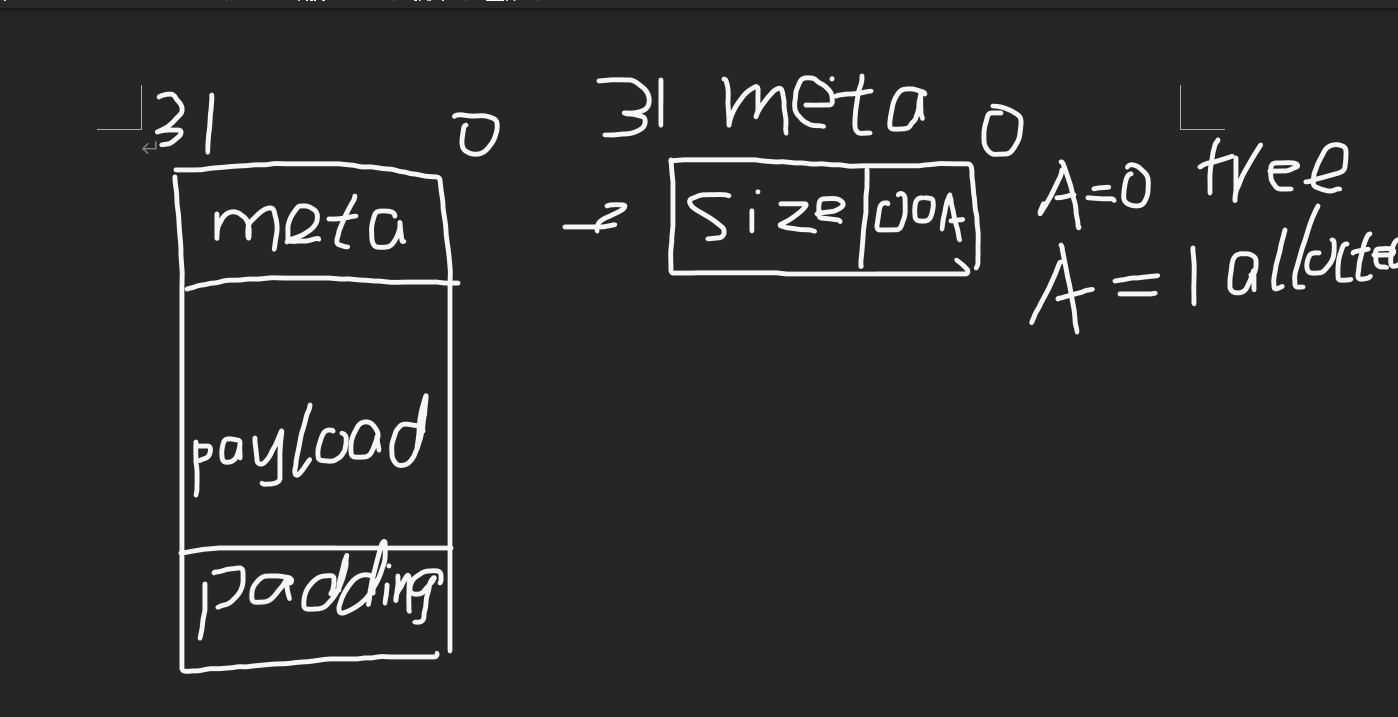 31 0
meta
payload
padding
31 meta 0
size 00A
A=0 free
A=1 allocted